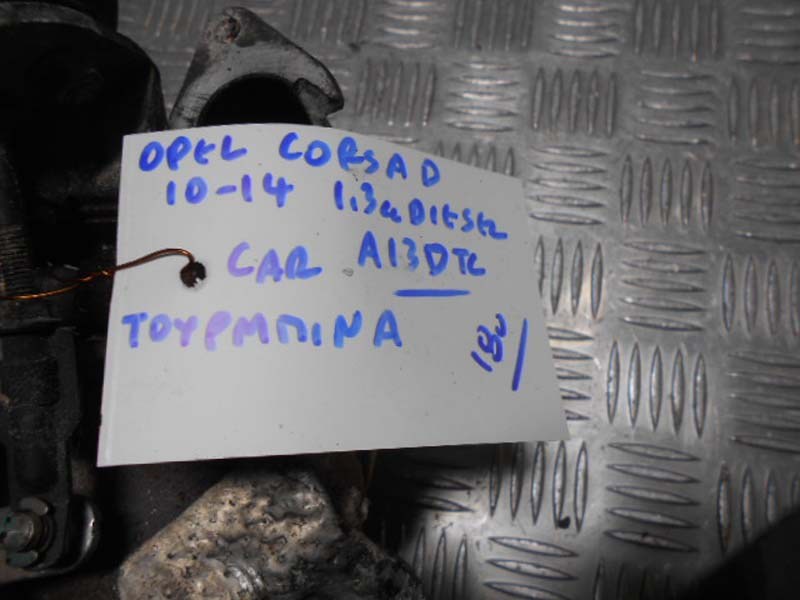 OPEL CORSA D
10-14 1.3cc DIESEL
CAR A13DTC
ΤΟΥΡΜΠΙΝΑ